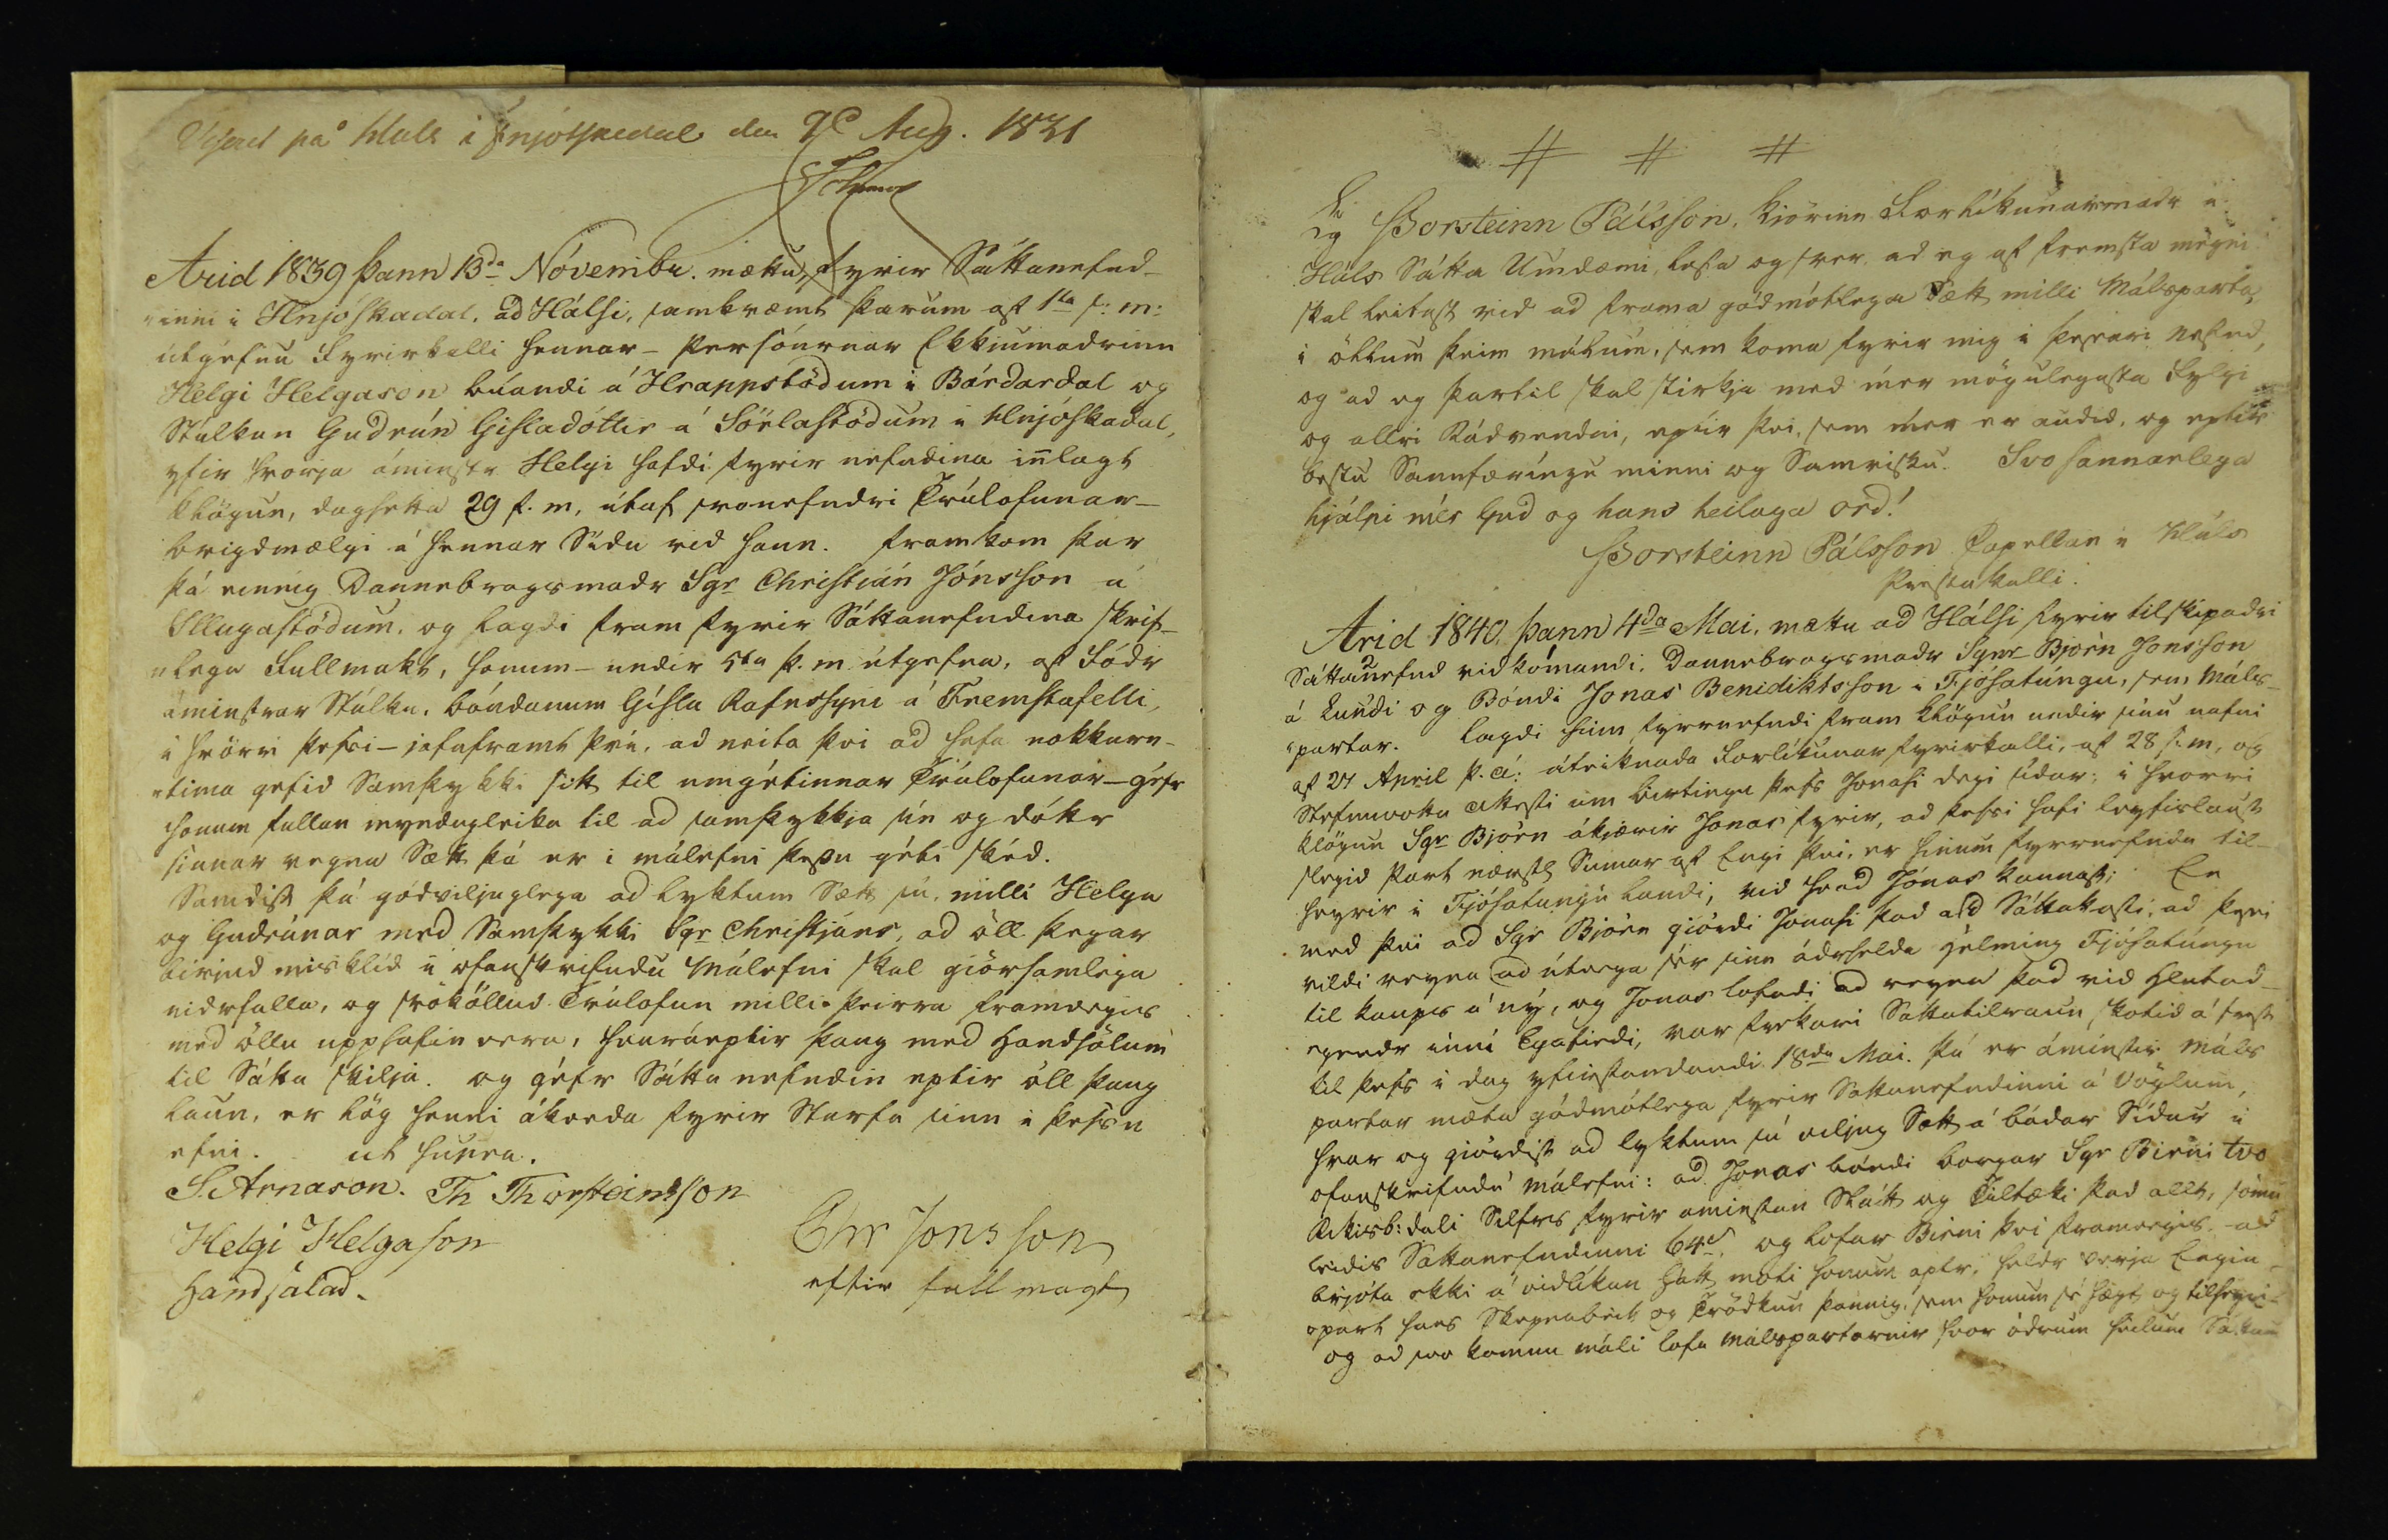 Viserad på Hals i Fnjóskedal den 9de Aug. 1831
Arid 1839 þann 13da Nóvembr. mættu, fyrir Sáttanefnd-
inni i Hnjóskadal, ad Hálsi, samkvæmt þarum af 1ta s: m:
útgéfnu Fyrirkalli hennar - Persónurnar Ekkiumadrinn
Helgi Helgason búandi á Hrappstödum i Bárdardal og
Stúlkan Gudrún Gisladóttir á Sörlastödum i Hnjóskadal,
yfir hvorja áminstr Helgi hafdi fyrir nefndina innlagt
Klögun, dagsetta 29 f. m, útaf svonefndri Trúlofunar-
brigdmælgi á hennar Sidu vid hann. Framkom þar
þá einnig Dannebrogsmadr Sgr Christián Jónsson á
Illugastödum, og lagdi fram fyrir Sáttanefndina skrif-
lega Fullmakt, honum - undir 5ta þ. m. útgefna, af Födr
áminstrar Stúlku, bóndanum Gísla Rafnssyni á Fremstafelli,
i hvörri þessi - jafnframt því, ad neita þvi ad hafa nokkurn-
tima gefid Samþykki sitt til umgétinnar Trúlofunar - géfr
honum fullan myndugleika til ad samþykkja sín og dóttr
sinnar vegna Sætt þá er i málefni þessu géti skéd.
Samdist þá gódviljuglega ad lyktum Sætt sú, milli Helga
og Gudrúnar med Samþykki Sgr Christjáns, ad öll þegar
birjud misklíd i ofanskrifudu Málefni skal giörsamlega
nidrfalla, og svoköllud Trúlofun milli þeirra framvegis
med öllu upphafin vera, hvaráeptir þaug med Handsölum
til Sátta skilja. og géfr Sátta nefndin eptir öll þaug
laun, er lög henni ákveda fyrir Starfa sinn i þessu
efni. ut supra.
S. Arnason. Th Thorsteinsson
Helgi Helgason
Chr Jonsson
Handsalad.
eftir fullmagt
# # #
Eg Þorsteinn Pálsson, kjörinn Forlíkunarmadr i
Háls Sátta Umdæmi, lofa og sver, ad eg af fremsta mégni
skal leitast vid ad frama gódmótlega Sætt milli Málsparta,
i öllum þeim málum, sem koma fyrir mig i þessari nefnd,
og ad eg þartil skal stirkja med mér mögulegasta Fylgi
og allri Rádvendni, eptir þvi, sem mér er audid, og eptir
bestu Sannfæríngu minni og Samvisku. Svo sannarlega
hjálpi mér Gud og hans heilaga ord!
Þorsteinn Pálsson Capellan i Háls
Prestakalli.
Arid 1840, þann 4da Mai, mættu ad Hálsi fyrir tilskipadri
Sáttanefnd vidkomandi, Dannebrogsmadr Sgnr Björn Jonsson
á Lundi og Bóndi Jonas Benidiktsson i Fjósatúngu, sem Máls-
partar. lagdi hinn fyrrnefndi fram Klögun undir sinu nafni
af 27 April þ. á: áteiknada Forlíkunar fyrirkalli, af 28 s. m, og
Stefnuvotta Attesti um birtingu þess Jonasi degi sidar; i hvorri
Klögun Sgr Björn ákjærir Jonas fyrir, ad þessi hafi leyfislaust
slegid Part næstl Sumar af Engi þvi, er hinum fyrrnefnda til-
heyrir i Fjósatungu landi, vid hvad Jónas kannast; En
med þvi ad Sgr Björn giördi Jonasi þad ad Sáttakosti, ad þessi
vildi reyna ad útvega sér sinn ádrselda helming Fjósatúngu
til kaups á ný, og Jonas lofadi ad reyna þad vid Hlutad-
eigendr inni Eyafirdi, var frekari Sáttatilraun skotid á frest
til þess i dag yfirstandandi 18da Mai. þá er áminstir Máls
partar mættu gódmótlega fyrir Sáttanefndinni á Vöglum,
hvar og giördist ad lyktum sú viljug Sætt á bádar Sidur i
ofanskrifudu Málefni: ad Jonas bóndi borgar Sgr Birni tvo
Rikisb: dali Silfrs fyrir áminstan Slátt og Tiltæki þad allt, sömu-
leidis Sáttanefndinni 64s. og lofar Birni þvi framvegis, ad
brjóta ekki á vidlíkan hátt móti honum aptr, heldr verja Engia-
part hans Skepnabeit og Trödkun þannig, sem honum sé hægt og tilheyri-
og ad svo komnu máli lofa málspartarnir hvor ödrum heilum Sáttum